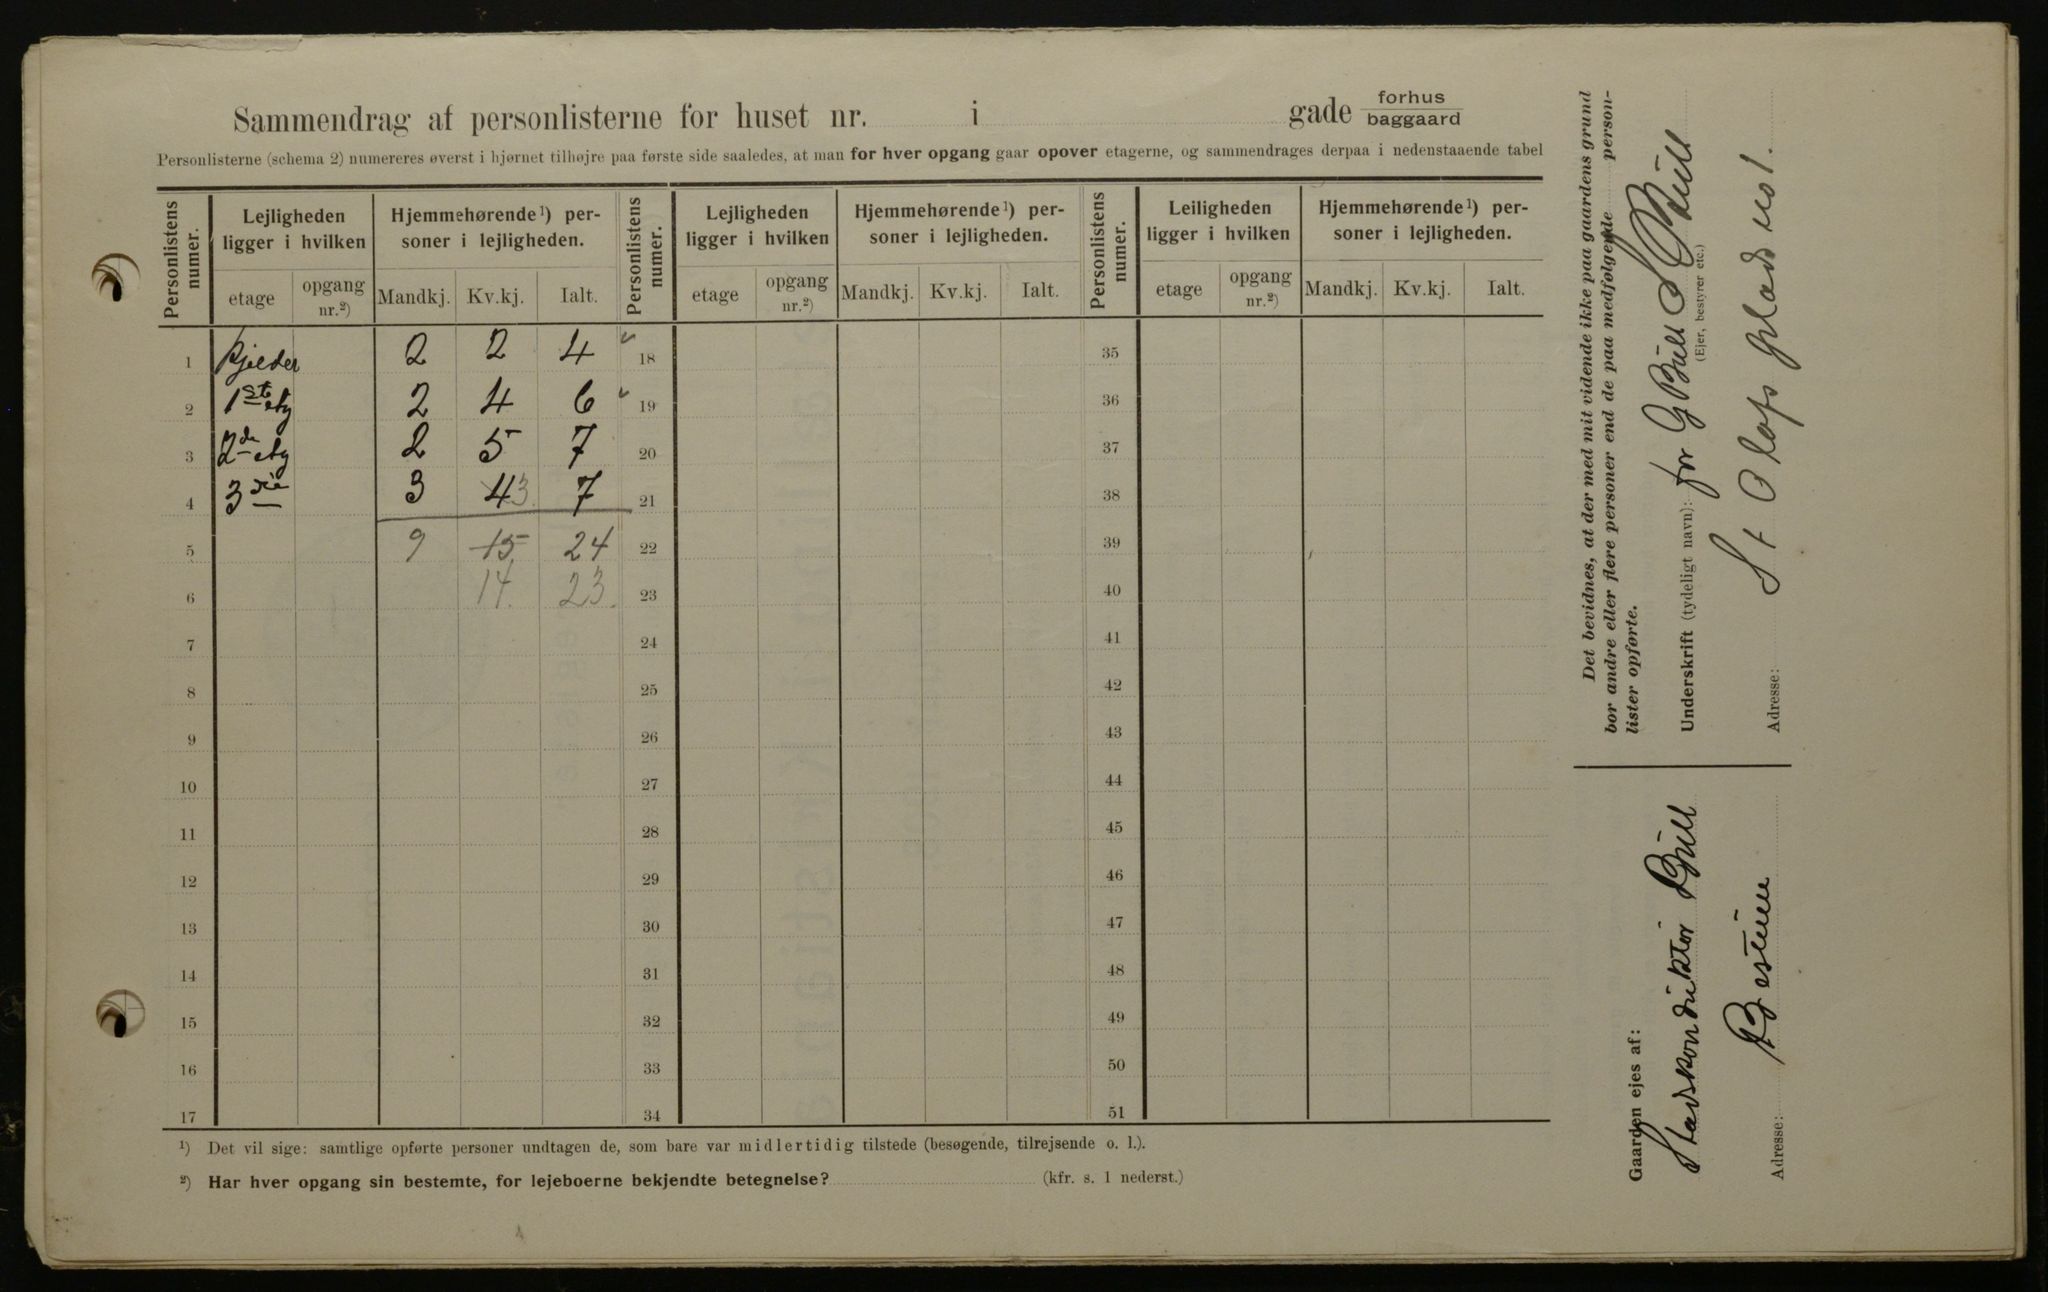 Sammendrag af personlisterne for huset nr. i gade forhus baggaard
Personlisterne (schema 2) numereres øverst i hjørnet tilhøjre paa første side saaledes, at man for hver opgang gaar opover etagerne, og sammendrages derpaa i nedenstaaende tabel
Personlistens numer. Lejligheden ligger i hvilken Hjemmehørende ¹) personer i lejligheden. Personlistens numer. Lejligheden ligger i hvilken Hjemmehørende ¹) personer i lejligheden. Personlistens numer. Leiligheden ligger i hvilken Hjemmehørende ¹) personer i lejligheden.
etage opgang nr.²) Mandkj. Kv.kj. Ialt. etage opgang nr.²) Mandkj. Kv.kj. Ialt. etage opgang nr.²) Mandkj. Kv.kj. Ialt.
1 Kjelder 2 2 4 18 35
2 1st etg 2 4 6 19 36
3 2de etg 2 5 7 20 37
4 3die 3 4 3 7 21 38
5 9 15 24 22 39
6 14. 23. 23 40
7 24 41
8 25 42
9 26 43
10 27 44
11 28 45
12 29 46
13 30 47
14 31 48
15 32 49
16 33 50
17 34 51
¹) Det vil sige: samtlige opførte personer undtagen de, som bare var midlertidig tilstede (besøgende, tilrejsende o. l.).
²) Har hver opgang sin bestemte, for lejeboerne bekjendte betegnelse? (kfr. s. 1 nederst.)
Det bevidnes, at der med mit vidende ikke paa gaardens grund
bor andre eller flere personer end de paa medfølgende person-
lister opførte.
Underskrift (tydeligt navn): for G Bull S Bull
(Ejer, bestyrer etc.)
Adresse: St Olafs Plads no 1.
Gaarden ejes af:
Stadskonduktør Bull
Adresse: